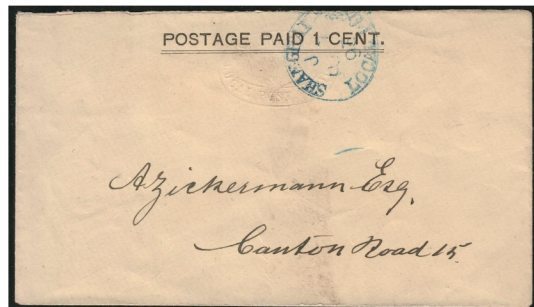 POSTAGE PAID 1 CENT.
SHANGHAI
LOCAL
A. Zickermann Esq.
Canton Road 15